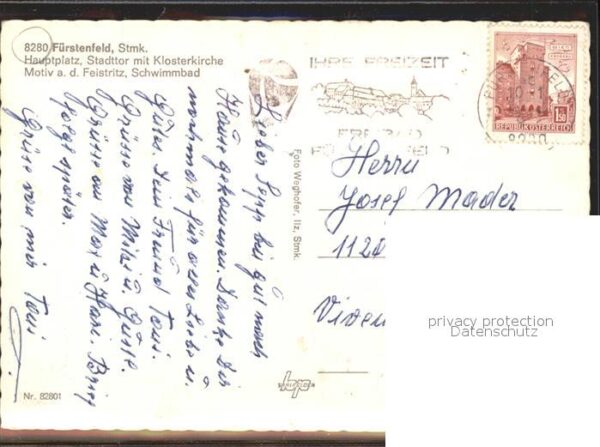 8280 Fürstenfeld, Stmk.
Hauptplatz, Stadttor mit Klosterkirche
Motiv a. d. Feistritz, Schwimmbad
IHRE FREIZEIT
FREIBAD
8280
1.50
REPUBLIK ÖSTERREICH
Lieber Sepp bin gut nach
Hause gekommen. Danke Dir
nochmals für deine Liebe u.
Güte. Dein Freund Toni.
Grüsse von Mizi u. Grüsse.
Grüsse an Max u. Hansi. Brief
folgt später.
Grüsse von mir Toni
Foto Weghofer, Ilz, Stmk.
Herrn
Josef Mader
1120
privacy protection
Datenschutz
bp
Nr. 82801